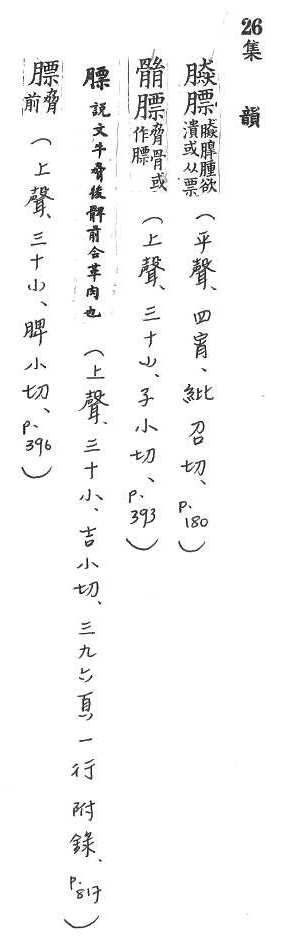 26 集韻
膘 腫欲潰或从票 (平聲、四宵、紕召切、p.180)
膘 脅骨或作膘 (上聲、三十小、子小切、p.393)
膘 說文牛脅後髀前合革肉也 (上聲、三十小、吉小切、三九六頁一行附錄、p.817)
膘 脅前 (上聲、三十小、脾小切、p.396)